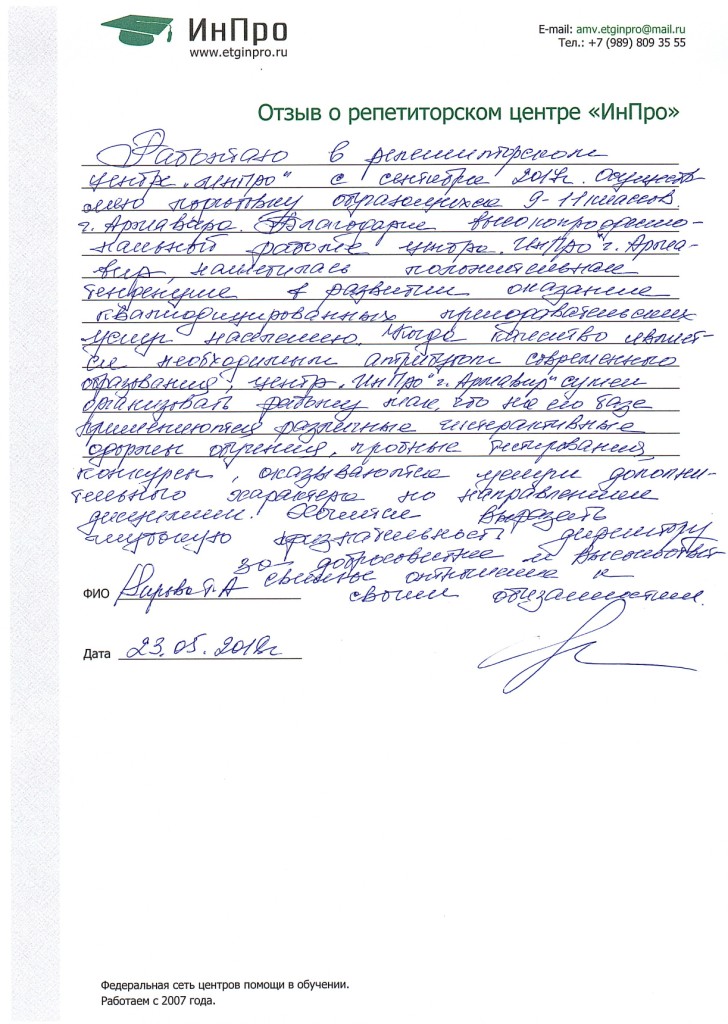 ИнПро
www.etginpro.ru
E-mail: amv.etginpro@mail.ru
Тел.: +7 (989) 809 35 55
Отзыв о репетиторском центре «ИнПро»
Работаю в репетиторском
центре „ИнПро" с сентября 2017г. Осущест
вляю подготовку обучающихся 9-11 классов
г. Армавира. Благодаря высокопрофессио-
нальной работе центра „ИнПро" г. Арма-
вир, наметилась положительная
тенденция в развитии оказание
квалифицированных преподавательских
услуг населению. Когда качество являет-
ся необходимым атрибутом современного
образования, центр „ИнПро" г. Армавир" сумел
организовать работу так, что на его базе
применяются различные интерактивные
формы обучения, пробные тестирования,
конкурсы, оказываются услуги дополни-
тельного характера по направлениям
дисциплин. Хочется выразить
глубокую признательность директору
за добросовестное и
отношение к
ФИО Т.А
своим обязанностям.
Дата 23.05.2018г
Федеральная сеть центров помощи в обучении.
Работаем с 2007 года.